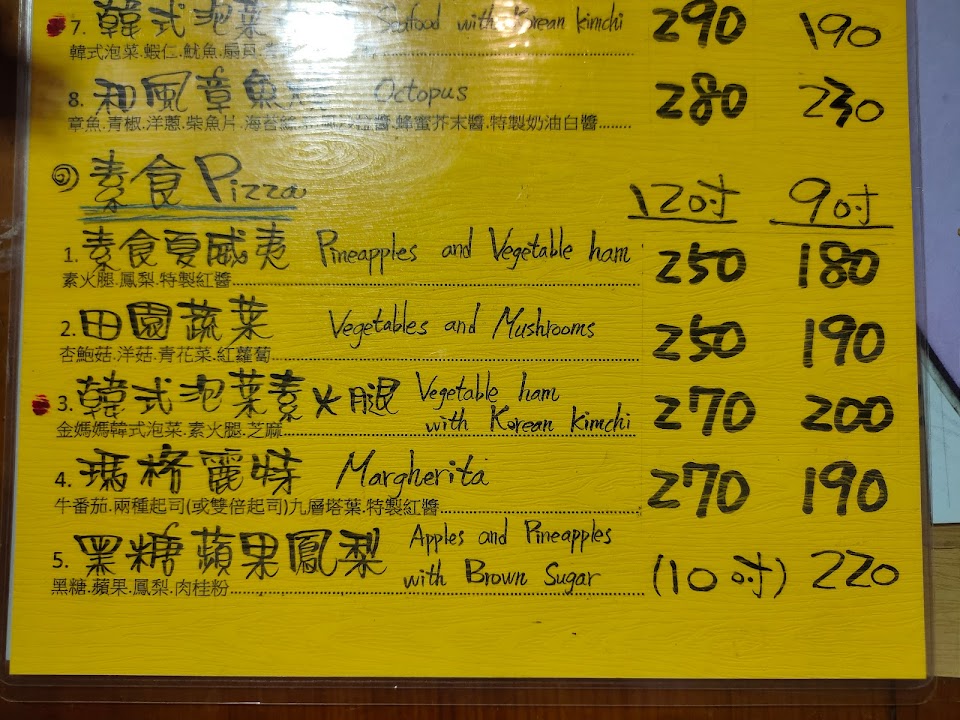 7. 韓式泡菜 Seafood with Korean kimchi 290 190
韓式泡菜.蝦仁.魷魚.扇貝
8. 和風章魚燒 Octopus 280 230
章魚.青椒.洋蔥.柴魚片.海苔 醬.蜂蜜芥末醬.特製奶油白醬........
素食 Pizza 12吋 9吋
1. 素食夏威夷 Pineapples and Vegetable ham 250 180
素火腿.鳳梨.特製紅醬
2. 田園蔬菜 Vegetables and Mushrooms 250 190
杏鮑菇.洋菇.青花菜.紅蘿蔔
3. 韓式泡菜素火腿 Vegetable ham with Korean kimchi 270 200
金媽媽韓式泡菜.素火腿.芝麻
4. 瑪格麗特 Margherita 270 190
牛番茄.兩種起司(或雙倍起司)九層塔葉.特製紅醬
5. 黑糖蘋果鳳梨 Apples and Pineapples with Brown Sugar (10吋) 220
黑糖.蘋果.鳳梨.肉桂粉